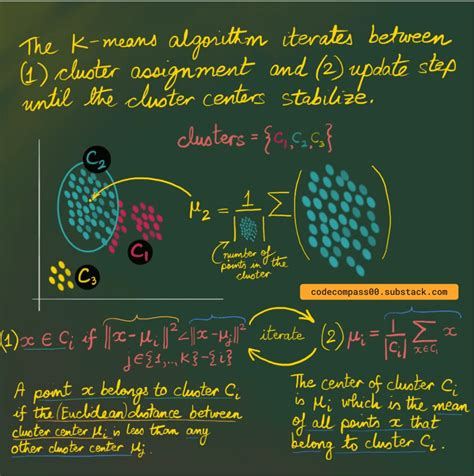 The K-means algorithm iterates between
(1) cluster assignment and (2) update step
until the cluster centers stabilize.
clusters = {C₁, C₂, C₃}
C₂
C₁
C₃
μ₂ = 1/| | Σ ( )
number of
points in the
cluster
codecompass00.substack.com
(1) x ∈ Cᵢ if ||x-μᵢ||² < ||x-μⱼ||²
j ∈ {1,..,k} - {i}
iterate
(2) μᵢ = 1/|Cᵢ| Σ x
x∈Cᵢ
A point x belongs to cluster Cᵢ
if the (Euclidean) distance between
cluster center μᵢ is less than any
other cluster center μⱼ.
The center of cluster Cᵢ
is μᵢ which is the mean
of all points x that
belong to cluster Cᵢ.